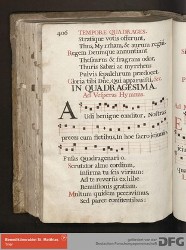 406 TEMPORE QUADRAGES.
Stratique votis offerunt,
Thus, Myrrham, & aurum regi.
Regem Deumque annuntiant
Thesaurus & fragrans odor,
Thuris Sabæi ac myrrheus
Pulvis sepulchrum
Gloria tibi Dne, Qui apparuisti,
IN QUADRAGESIMA.
Ad Vesperas Hymnus.
Audi benigne conditor, Nostras
preces cum fletibus, in hoc sacro jejunio
Fusas Quadragenario.
Scrutator alme cordium,
Infirma tu scis virium:
Ad te reversis exhibe
Remissionis gratiam.
Multum quidem peccavimus,
Sed parce confitentibus:
DFG